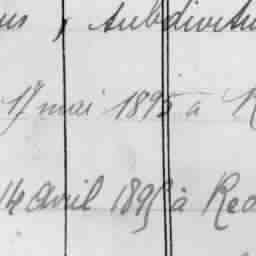 us, subdivitu
17 mai 1895 à R
14 avril 1895 à Red